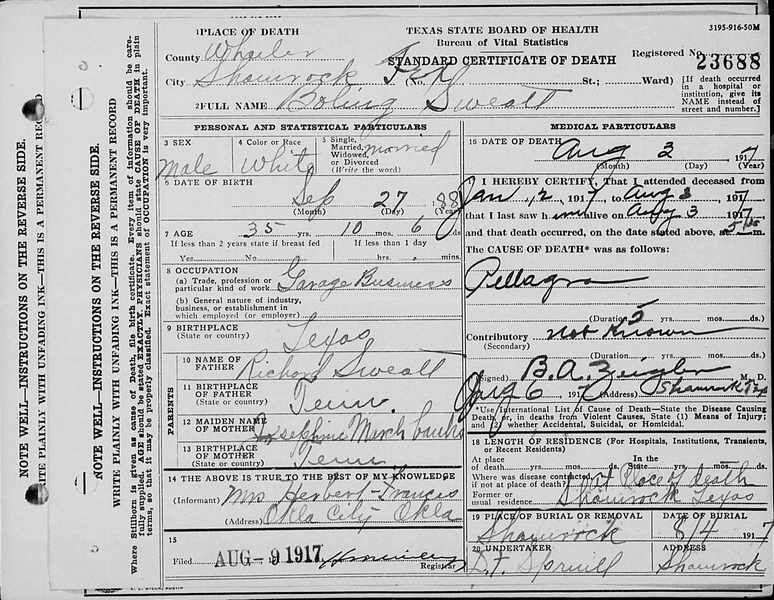 TEXAS STATE BOARD OF HEALTH
Bureau of Vital Statistics
STANDARD CERTIFICATE OF DEATH
3195-916-50M
Registered No. 23688
1 PLACE OF DEATH
County Wheeler
City Shamrock Tex (No. St.; Ward)
[If death occurred in a hospital or institution, give its NAME instead of street and number.]
2 FULL NAME Boling Sweatt
PERSONAL AND STATISTICAL PARTICULARS
3 SEX Male
4 Color or Race White
5 Single, Married, Widowed, or Divorced (Write the word) married
6 DATE OF BIRTH
Sep 27 188
(Month) (Day) (Year)
7 AGE 35 yrs. 10 mos. 6 ds.
If less than 2 years state if breast fed If less than 1 day
Yes No hrs. mins.
8 OCCUPATION
(a) Trade, profession or particular kind of work Garage Business
(b) General nature of industry, business, or establishment in which employed (or employer)
9 BIRTHPLACE
(State or country) Texas
PARENTS
10 NAME OF FATHER Richard Sweatt
11 BIRTHPLACE OF FATHER
(State or country) Tenn.
12 MAIDEN NAME OF MOTHER Josephine March banks
13 BIRTHPLACE OF MOTHER
(State or country) Tenn
14 THE ABOVE IS TRUE TO THE BEST OF MY KNOWLEDGE
(Informant) Mrs Herbert Francis
(Address) Okla City Okla
15
Filed AUG - 9 1917
Registrar
MEDICAL PARTICULARS
16 DATE OF DEATH
Aug 3 1917
(Month) (Day) (Year)
I HEREBY CERTIFY, That I attended deceased from
Jan, 2, 1917 to Aug 3 1917
that I last saw him alive on Aug 3 1917
and that death occurred, on the date stated above, at 5 m.
The CAUSE OF DEATH* was as follows:
Pellagra
(Duration) 5 yrs. mos. ds.)
Contributory Not Known
(Secondary)
(Duration yrs. mos. ds.)
(Signed) B. A. Zeigler M. D.
Aug 6 1917 (Address) Shamrock Tex
*Use International List of Cause of Death—State the Disease Causing Death, or, in deaths from Violent Causes, State (1) Means of Injury; and (2) whether Accidental, Suicidal, or Homicidal.
18 LENGTH OF RESIDENCE (For Hospitals, Institutions, Transients, or Recent Residents)
At place of death yrs. mos. ds. In the State yrs. mos. ds.
Where was disease contracted if not at place of death? at Place of death
Former or usual residence Shamrock Texas
19 PLACE OF BURIAL OR REMOVAL DATE OF BURIAL
Shamrock 8/4 1917
20 UNDERTAKER ADDRESS
Spruill Shamrock
NOTE WELL—INSTRUCTIONS ON THE REVERSE SIDE.
WRITE PLAINLY WITH UNFADING INK—THIS IS A PERMANENT RECORD
NOTE WELL—INSTRUCTIONS ON THE REVERSE SIDE.
WRITE PLAINLY WITH UNFADING INK—THIS IS A PERMANENT RECORD
Where Stillborn is given as cause of Death, file birth certificate. Every item of information should be carefully supplied. AGE should be stated EXACTLY. PHYSICIANS should state CAUSE OF DEATH in plain terms, so that it may be properly classified. Exact statement of OCCUPATION is very important.